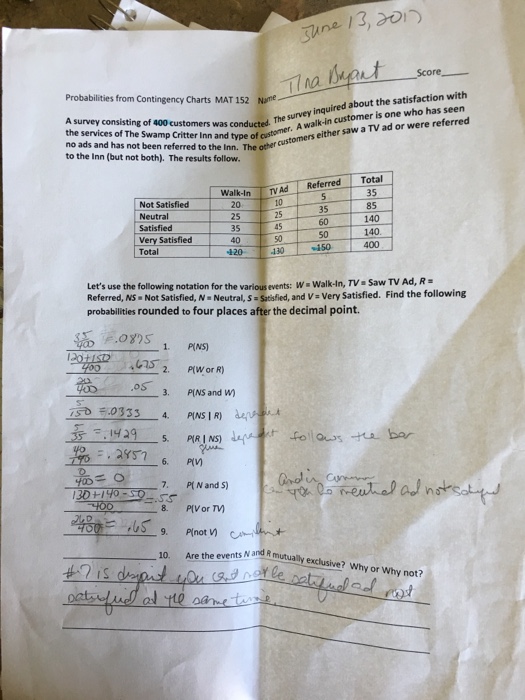 June 13, 2017
Probabilities from Contingency Charts MAT 152 Name Tina Bryant Score
A survey consisting of 400 customers was conducted. The survey inquired about the satisfaction with
the services of The Swamp Critter Inn and type of customer. A walk-in customer is one who has seen
no ads and has not been referred to the Inn. The other customers either saw a TV ad or were referred
to the Inn (but not both). The results follow.
Walk-In TV Ad Referred Total
Not Satisfied 20 10 5 35
Neutral 25 25 35 85
Satisfied 35 45 60 140
Very Satisfied 40 50 50 140
Total 120 130 150 400
Let's use the following notation for the various events: W = Walk-In, TV = Saw TV Ad, R =
Referred, NS = Not Satisfied, N = Neutral, S = Satisfied, and V = Very Satisfied. Find the following
probabilities rounded to four places after the decimal point.
35/400 = .0875 1. P(NS)
120+150/400 .675 2. P(W or R)
20/400 .05 3. P(NS and W)
5/150 = .0333 4. P(NS | R)
5/35 = .1429 5. P(R | NS) follows the bar
given
= .2857 6. P(V)
0/400 = 0 7. P( N and S)
130+140-50/400 = .55 8. P(V or TV)
260/400 = .65 9. P(not V)
10. Are the events N and R mutually exclusive? Why or Why not?
#7 is you not be satisfied and not
satisfied at the same time